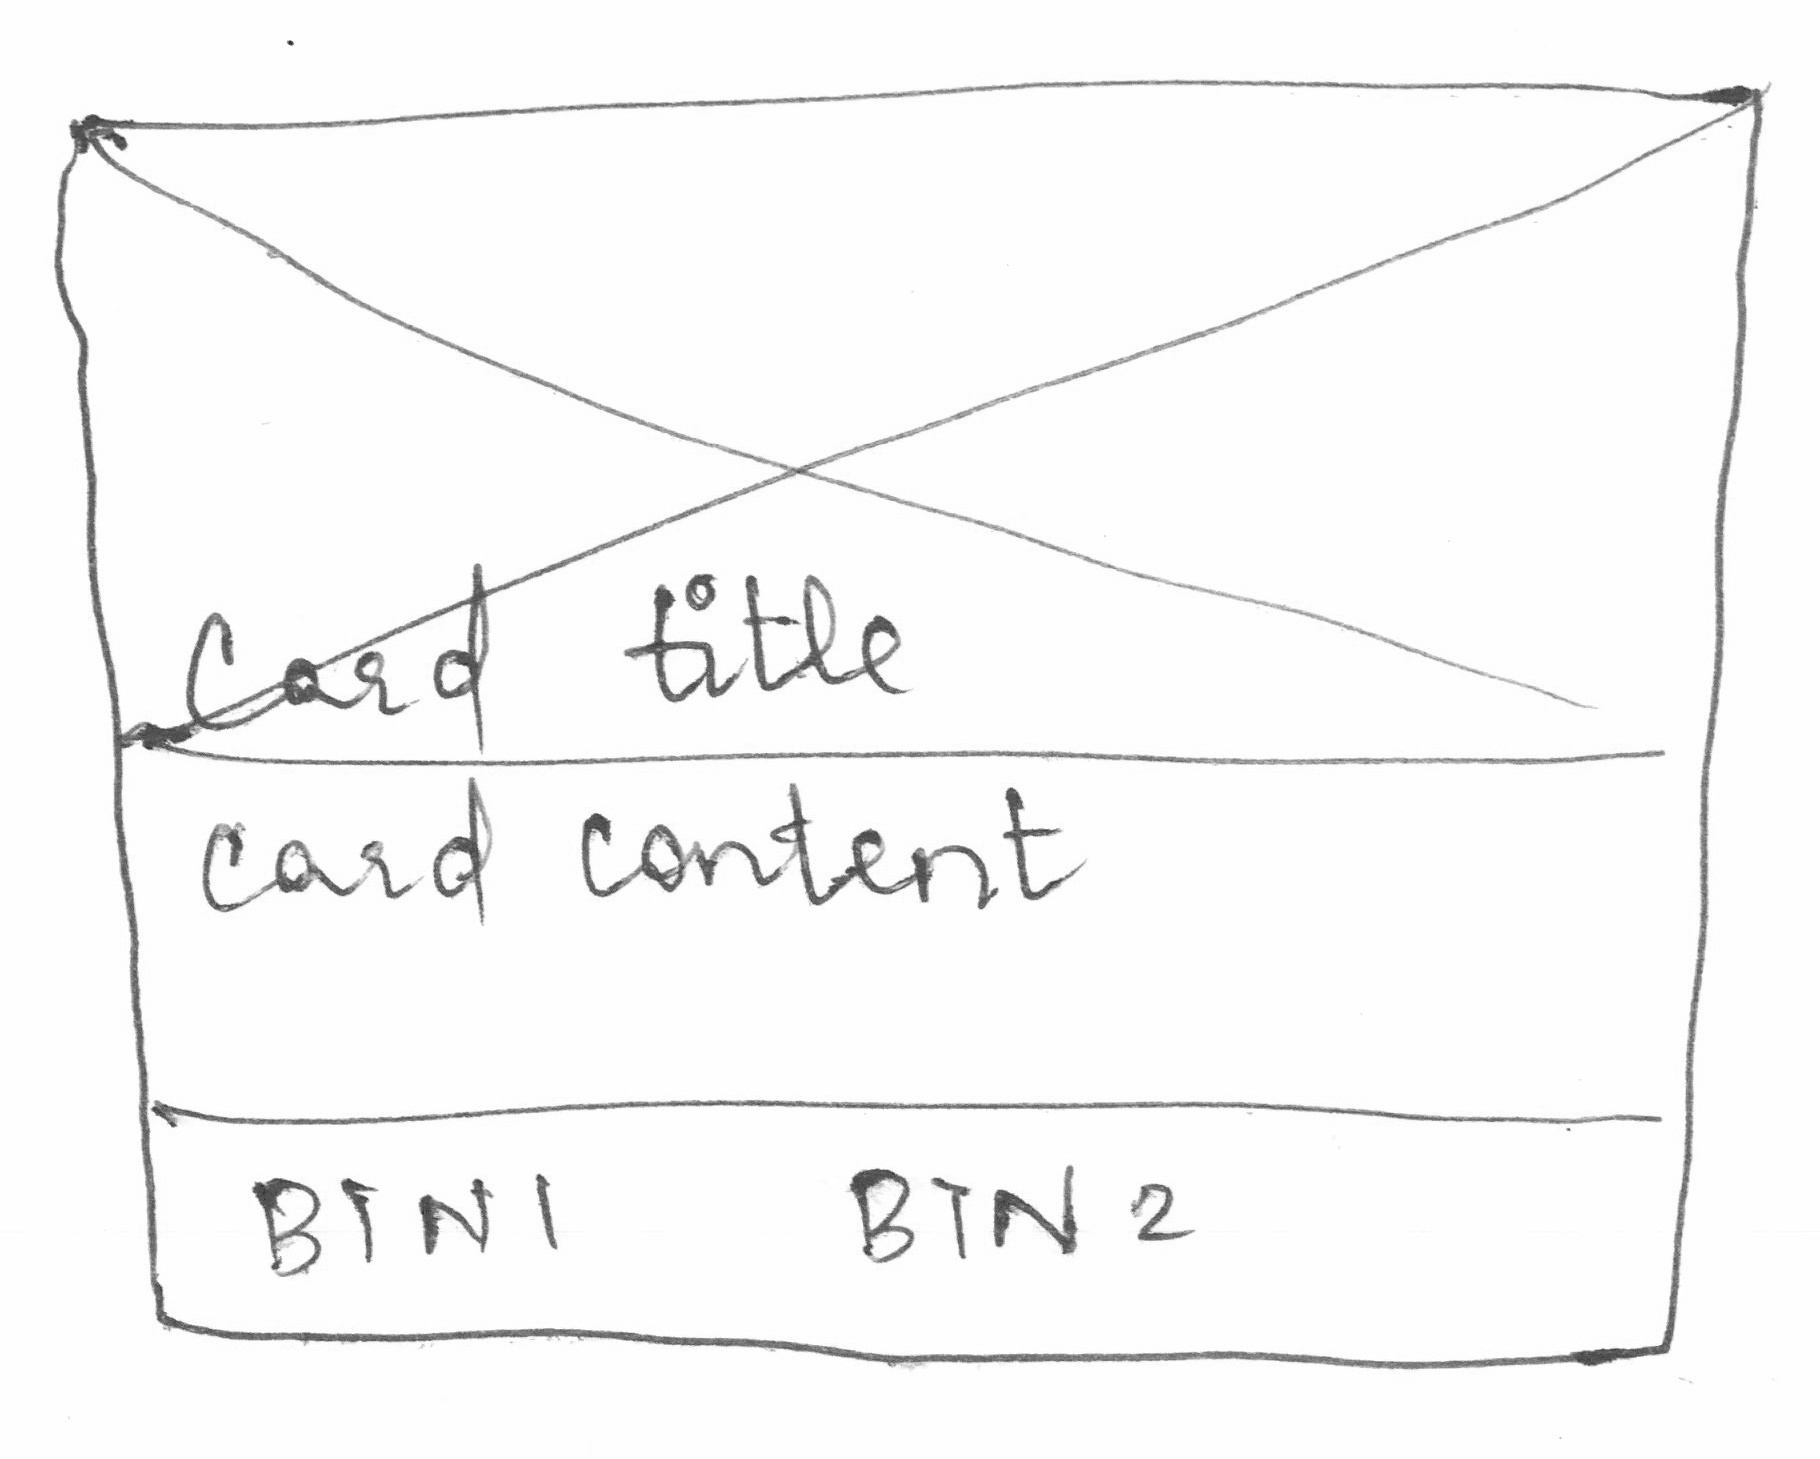 Card title
card content
BTN1 BTN 2